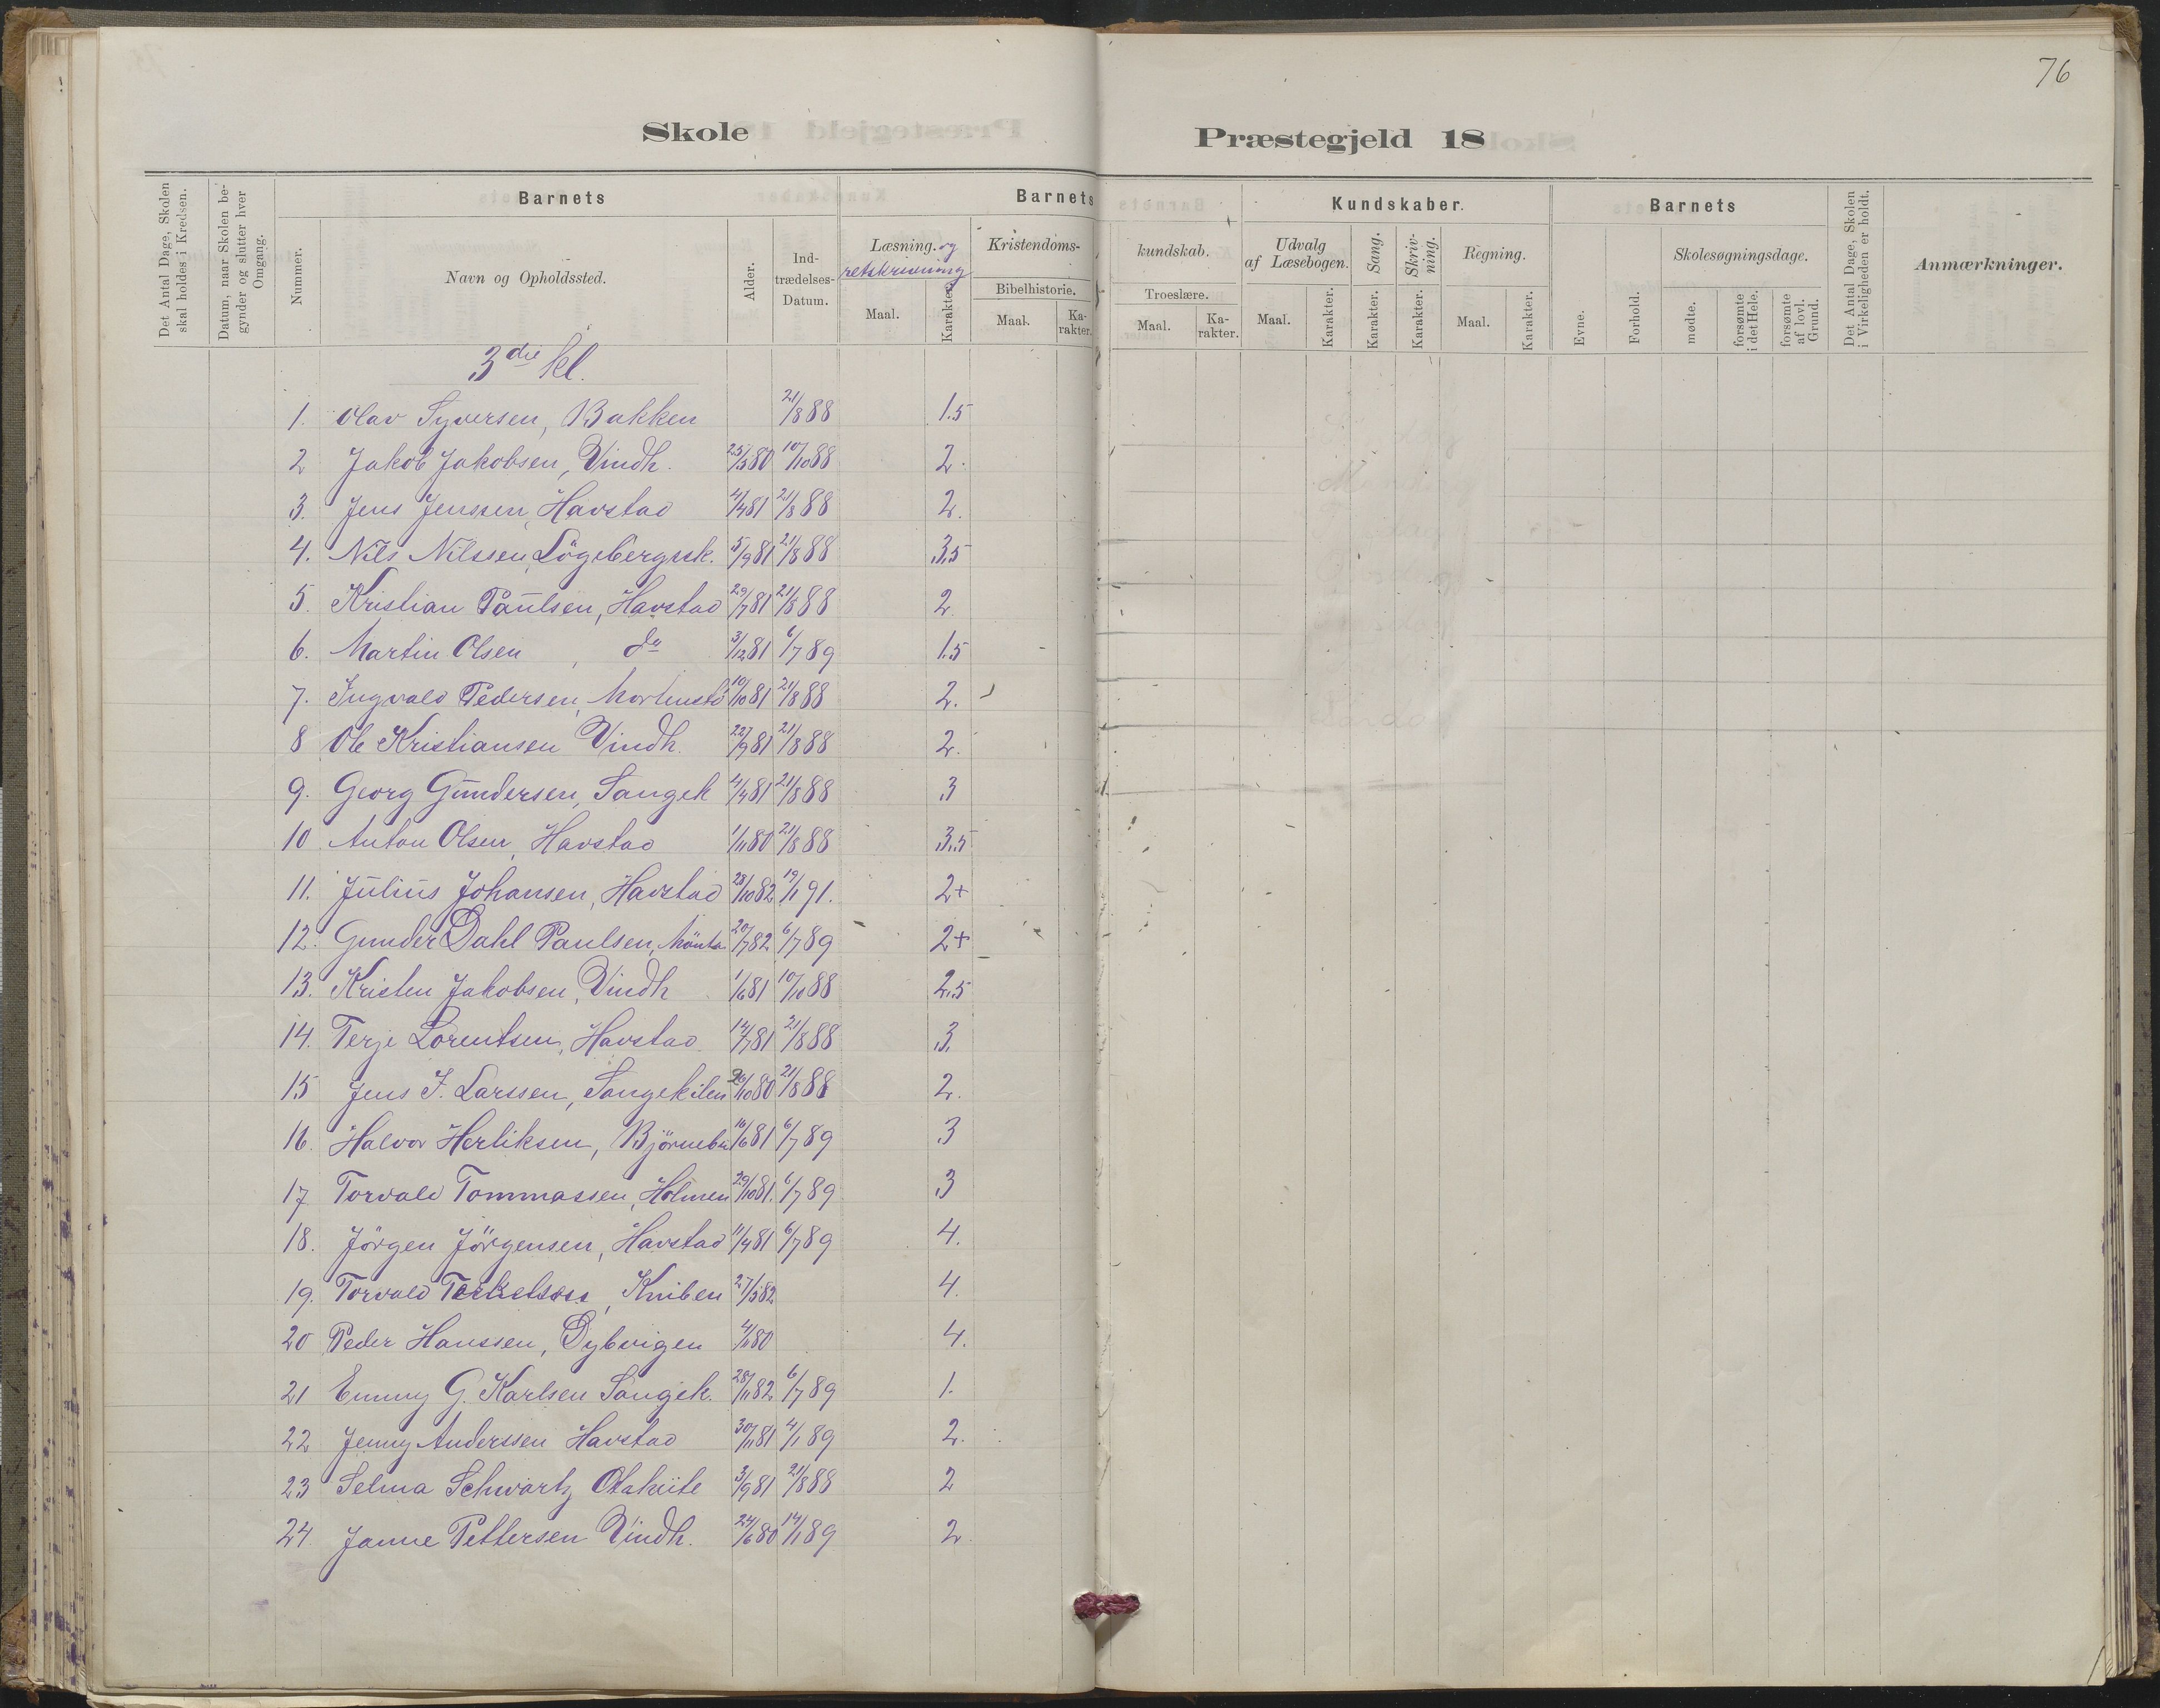 76
Skole Præstegjeld 18
Det Antal Dage, Skolen skal holdes i Kredsen.
Datum, naar Skolen begynder og slutter hver Omgang.
Barnets
Nummer.
Navn og Opholdssted.
Alder.
Indtrædelses-Datum.
Barnets Kundskaber.
Læsning. og retskrivning
Maal.
Karakter.
Kristendomskundskab.
Bibelhistorie.
Maal.
Karakter.
Troeslære.
Maal.
Karakter.
Udvalg af Læsebogen.
Maal.
Karakter.
Sang.
Karakter.
Skrivning.
Karakter.
Regning.
Maal.
Karakter.
Barnets
Evne.
Forhold.
Skolesøgningsdage.
mødte.
forsømte i det Hele.
forsømte af lovl. Grund.
Det Antal Dage, Skolen i Virkeligheden er holdt.
Anmærkninger.
3die kl.
1. Olav Syversen, Bakken 21/8 88 1.5
2 Jakob Jakobsen, Vindh. 25/5 80 10/10 88 2.
3. Jens Jenssen, Havstad 4/4 81 21/8 88 2.
4. Nils Nilssen, Lögebergsk. 5/9 81 21/8 88 3.5
5. Kristian Paulsen, Havstad 29/7 81 21/8 88 2.
6. Martin Olsen, do 3/12 81 6/7 89 1.5
7. Ingvald Pedersen, 10/10 81 21/8 88 2.
8 Ole Kristiansen Vindh. 22/9 81 21/8 88 2.
9. Georg Gundersen, Sangek 4/4 81 21/8 88 3
10 Anton Olsen, Havstad 1/11 80 21/8 88 3.5
11. Julius Johansen, Havstad 28/10 82 19/1 91. 2+
12. Gunder Dahl Paulsen, 20/7 82 6/7 89 2+
13. Kristen Jakobsen, Vindh 1/6 81 10/10 88 2.5
14. Terje Lorentsen, Havstad 14/7 81 21/8 88 3.
15 Jens J. Larssen, Sangekilen 26/10 80 21/8 88 2.
16. Halvor Herliksen, Björnebu 16/6 81 6/7 89 3
17 Torvald Tommassen, Holmen 29/10 81. 6/7 89 3
18. Jörgen Jörgensen, Havstad 11/4 81 6/7 89 4.
19. Torvald Terkelsen, Kniben 27/5 82 4.
20 Peder Hanssen, Dybvigen 4/11 80 4.
21 Emmy G. Karlsen Sangek. 28/11 82 6/7 89 1.
22 Jenny Anderssen Havstad 30/11 81 4/1 89 2.
23 Selma Schwartz Otaheite 3/9 81 21/8 88 2
24. Janne Pettersen Vindh. 24/6 80 14/1 89 2